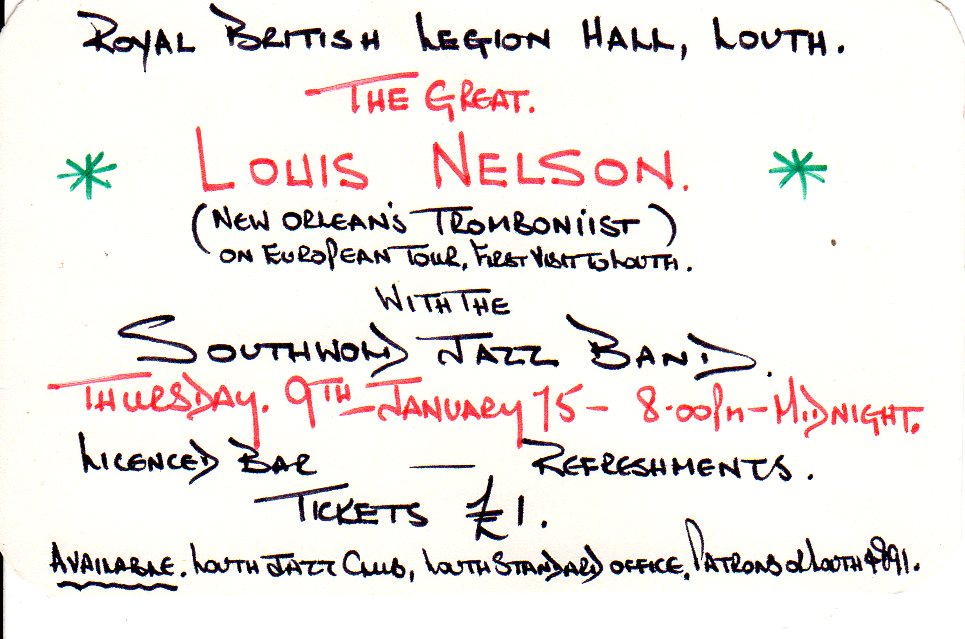 ROYAL BRITISH LEGION HALL, LOUTH.
THE GREAT.
* LOUIS NELSON. *
(NEW ORLEAN'S TROMBONIIST)
ON EUROPEAN TOUR, FIRST VISIT TO LOUTH.
WITH THE
SOUTHWOLD JAZZ BAND.
THURSDAY. 9TH - JANUARY 75 - 8.00PM - MIDNIGHT.
LICENCED BAR — REFRESHMENTS.
TICKETS £1.
AVAILABLE. LOUTH JAZZ CLUB, LOUTH STANDARD OFFICE, PATRONS OR LOUTH 4891.